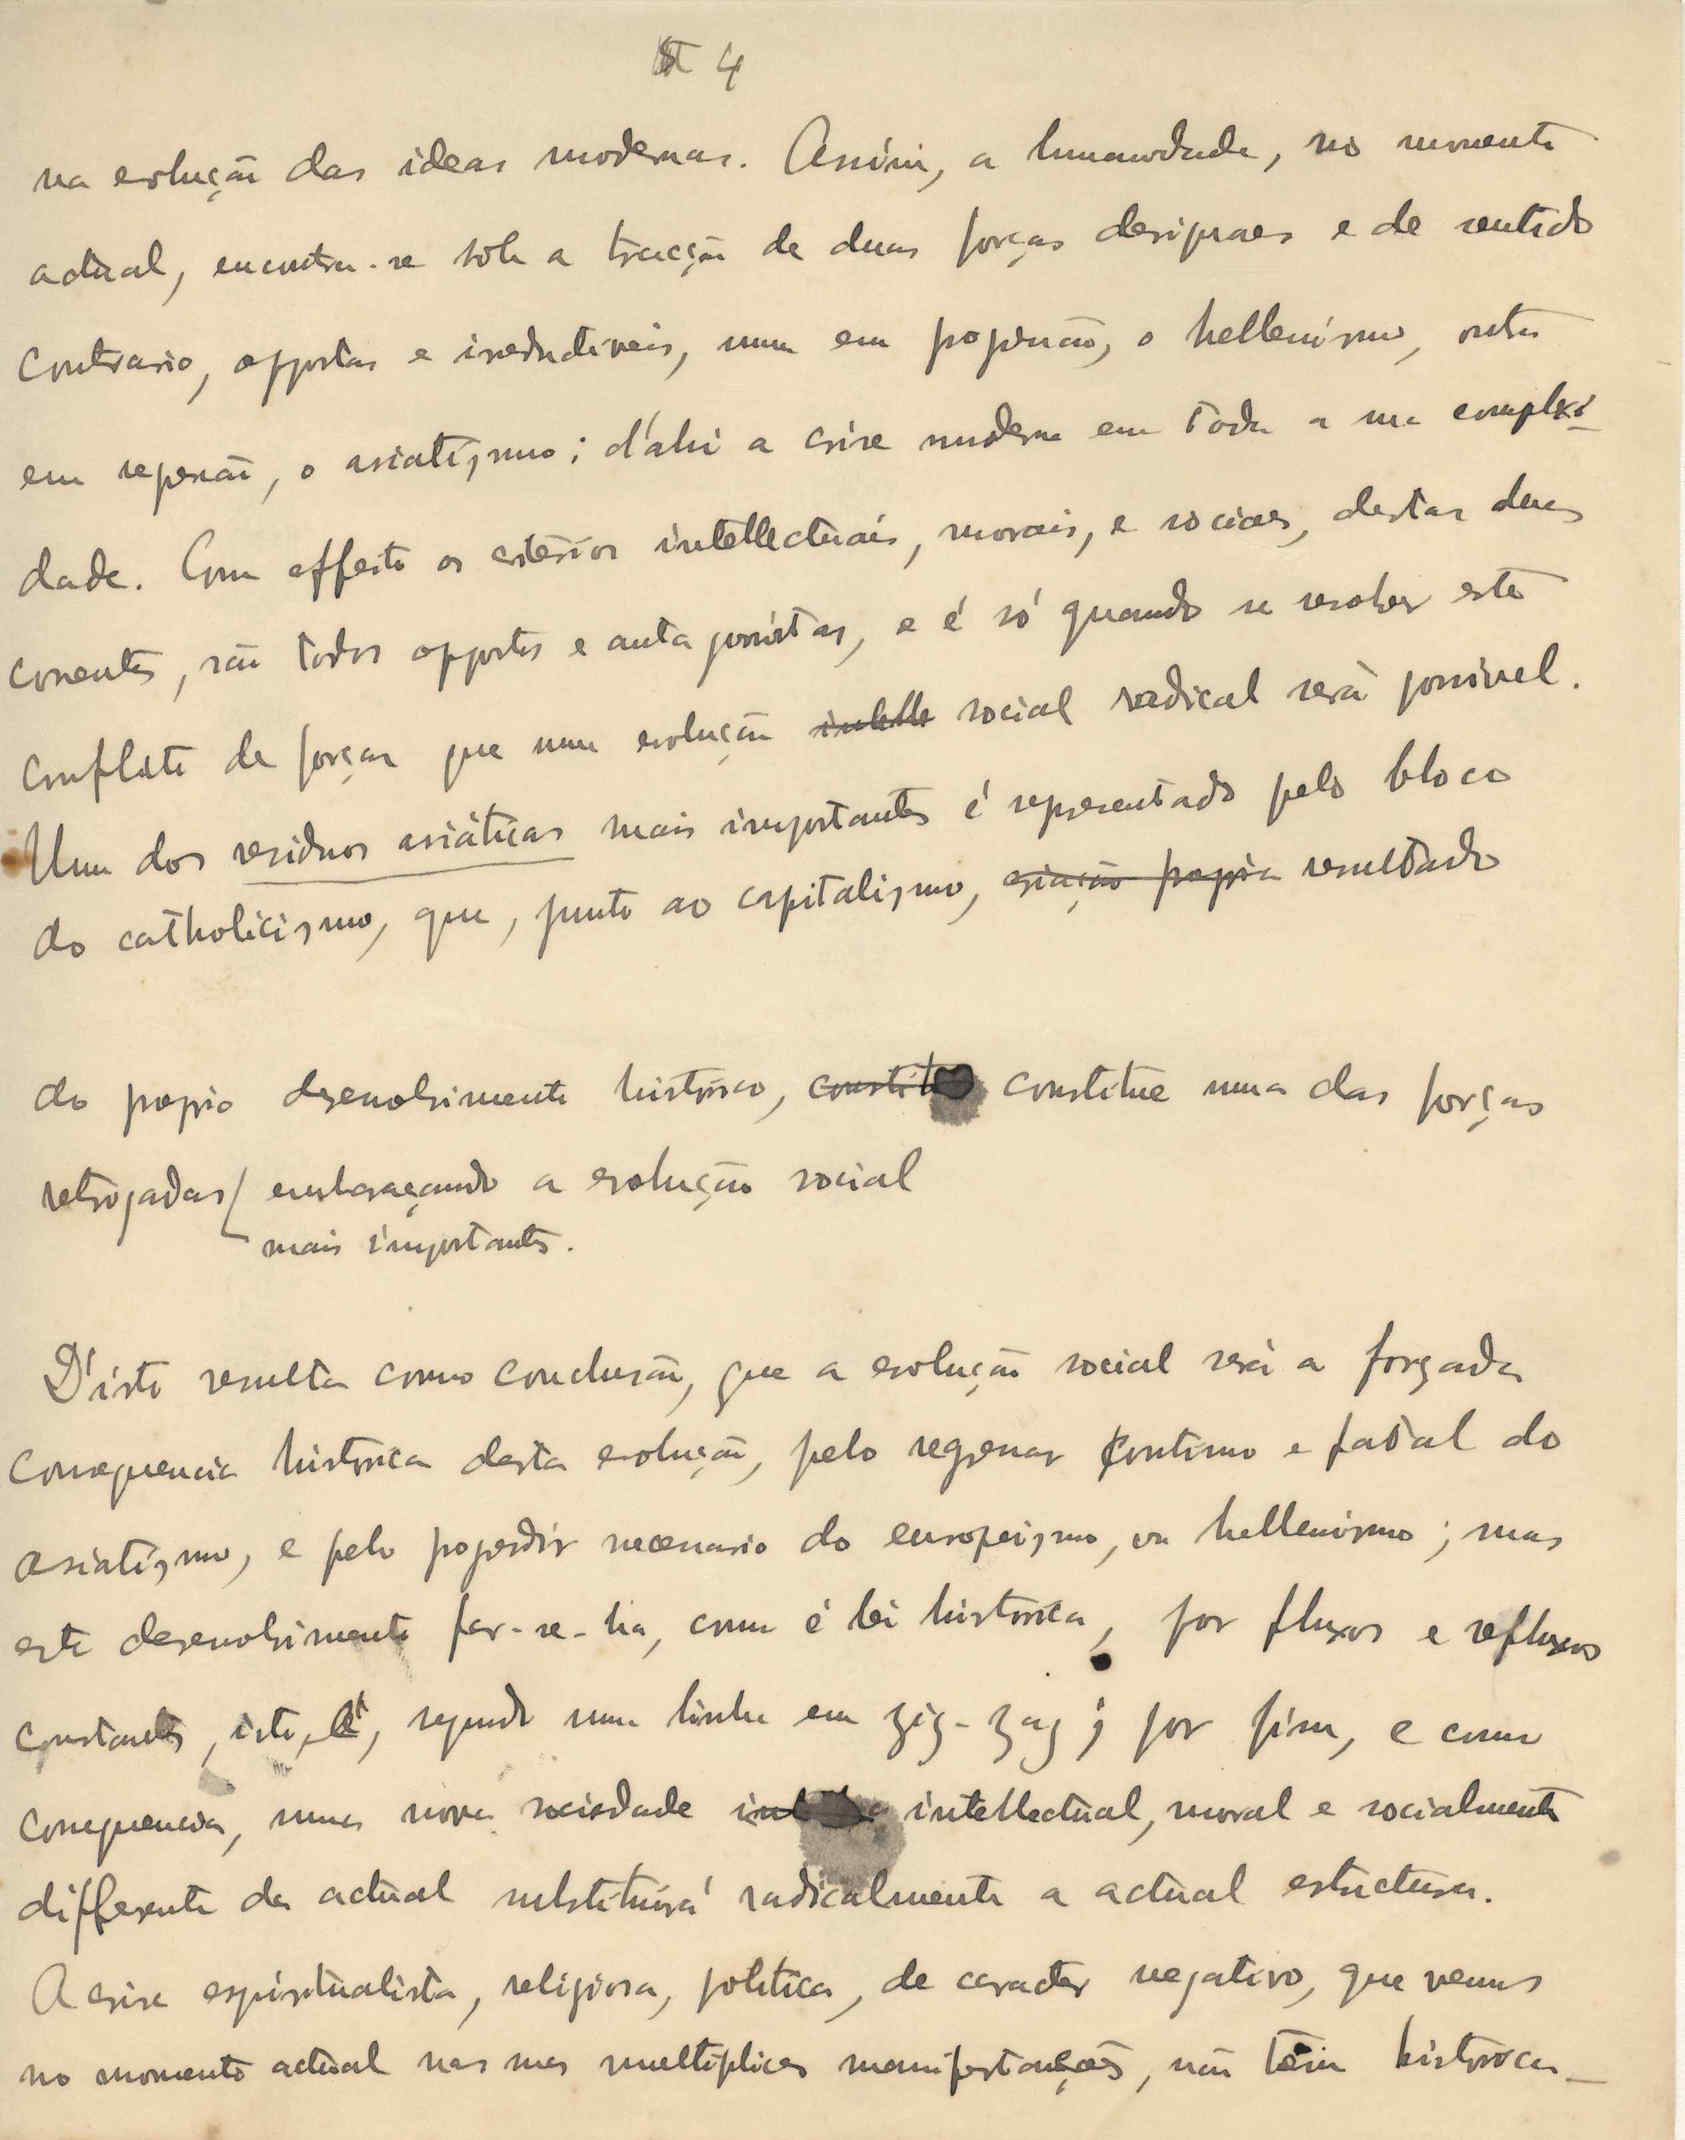 4
na evolução das ideas modernas. Assim, a humanidade, no momento
actual, encontra-se sob a tracção de duas forças desiguaes e de sentido
contrario, oppostas e irreductiveis, uma em progressão, o hellenismo, outra
em regressão, o asiatismo; d'ahi a crise moderna em toda a sua complexi-
dade. Com effeito os criterios intellectuais, morais, e sociaes, destas duas
correntes, são todos oppostos e antagonistas, e é só quando se resolver este
conflito de forças que uma evolução intelle social radical será possivel.
Um dos residuos asiáticos mais importantes é representado pelo bloco
do catholicismo, que, junto ao capitalismo, criação propria resultado
do proprio desenvolvimento histórico, constitue constitue uma das forças
retrogadas embaraçando a evolução social
mais importantes.
D'isto resulta como conclusão, que a evolução social será a forçada
consequencia histórica desta evolução, pelo regressar continuo e fatal do
asiatismo, e pelo progredir necessario do europeismo, ou hellenismo; mas
este desenvolvimento far-se-ha, como é lei histórica, por fluxos e refluxos
constantes, isto é, segundo uma linha em zig-zag; por fim, e como
consequencia, uma nova sociedade intellectual, moral e socialmente
differente da actual substituirá radicalmente a actual estructura.
A crise espiritualista, religiosa, politica, de caracter negativo, que vemos
no momento actual nas suas multiplices manifestações, não têm historica-